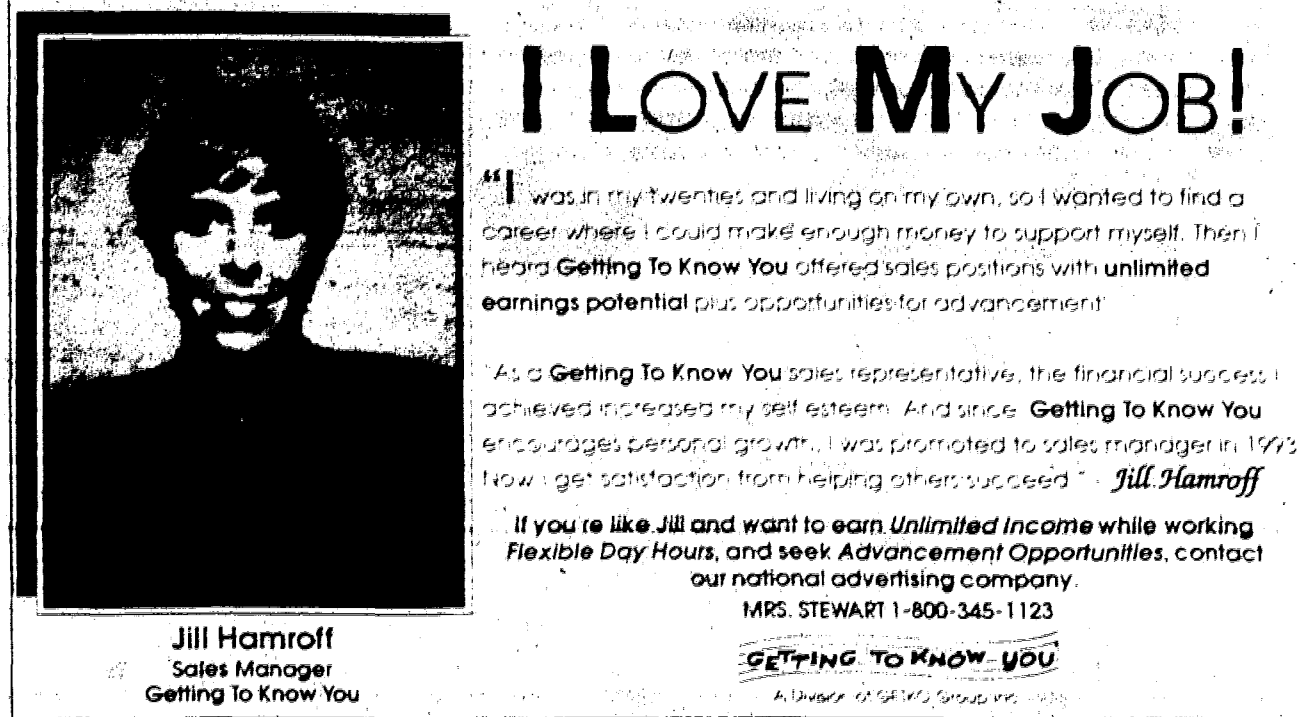 I LOVE MY JOB!
"I was in my twenties and living on my own, so I wanted to find a
career where I could make enough money to support myself. Then I
heard Getting To Know You offered sales positions with unlimited
earnings potential plus opportunities for advancement.
"As a Getting To Know You sales representative, the financial success I
achieved increased my self esteem. And since Getting To Know You
encourages personal growth, I was promoted to sales manager in 1993.
Now I get satisfaction from helping others succeed." - Jill Hamroff
If you're like Jill and want to earn Unlimited Income while working
Flexible Day Hours, and seek Advancement Opportunities, contact
our national advertising company.
MRS. STEWART 1-800-345-1123
GETTING TO KNOW YOU
A Division of GETKO Group Inc.
Jill Hamroff
Sales Manager
Getting To Know You